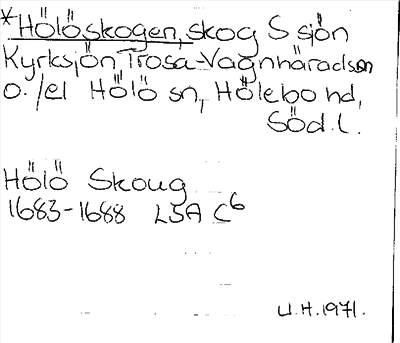 *Hölöskogen, skog S sjön
Kyrksjön, Trosa-Vagnhärads sn
o. /el Hölö sn, Hölebo hd,
Söd. l.
Hölö Skoug
1683-1688 LSA C6
U.H. 1971.